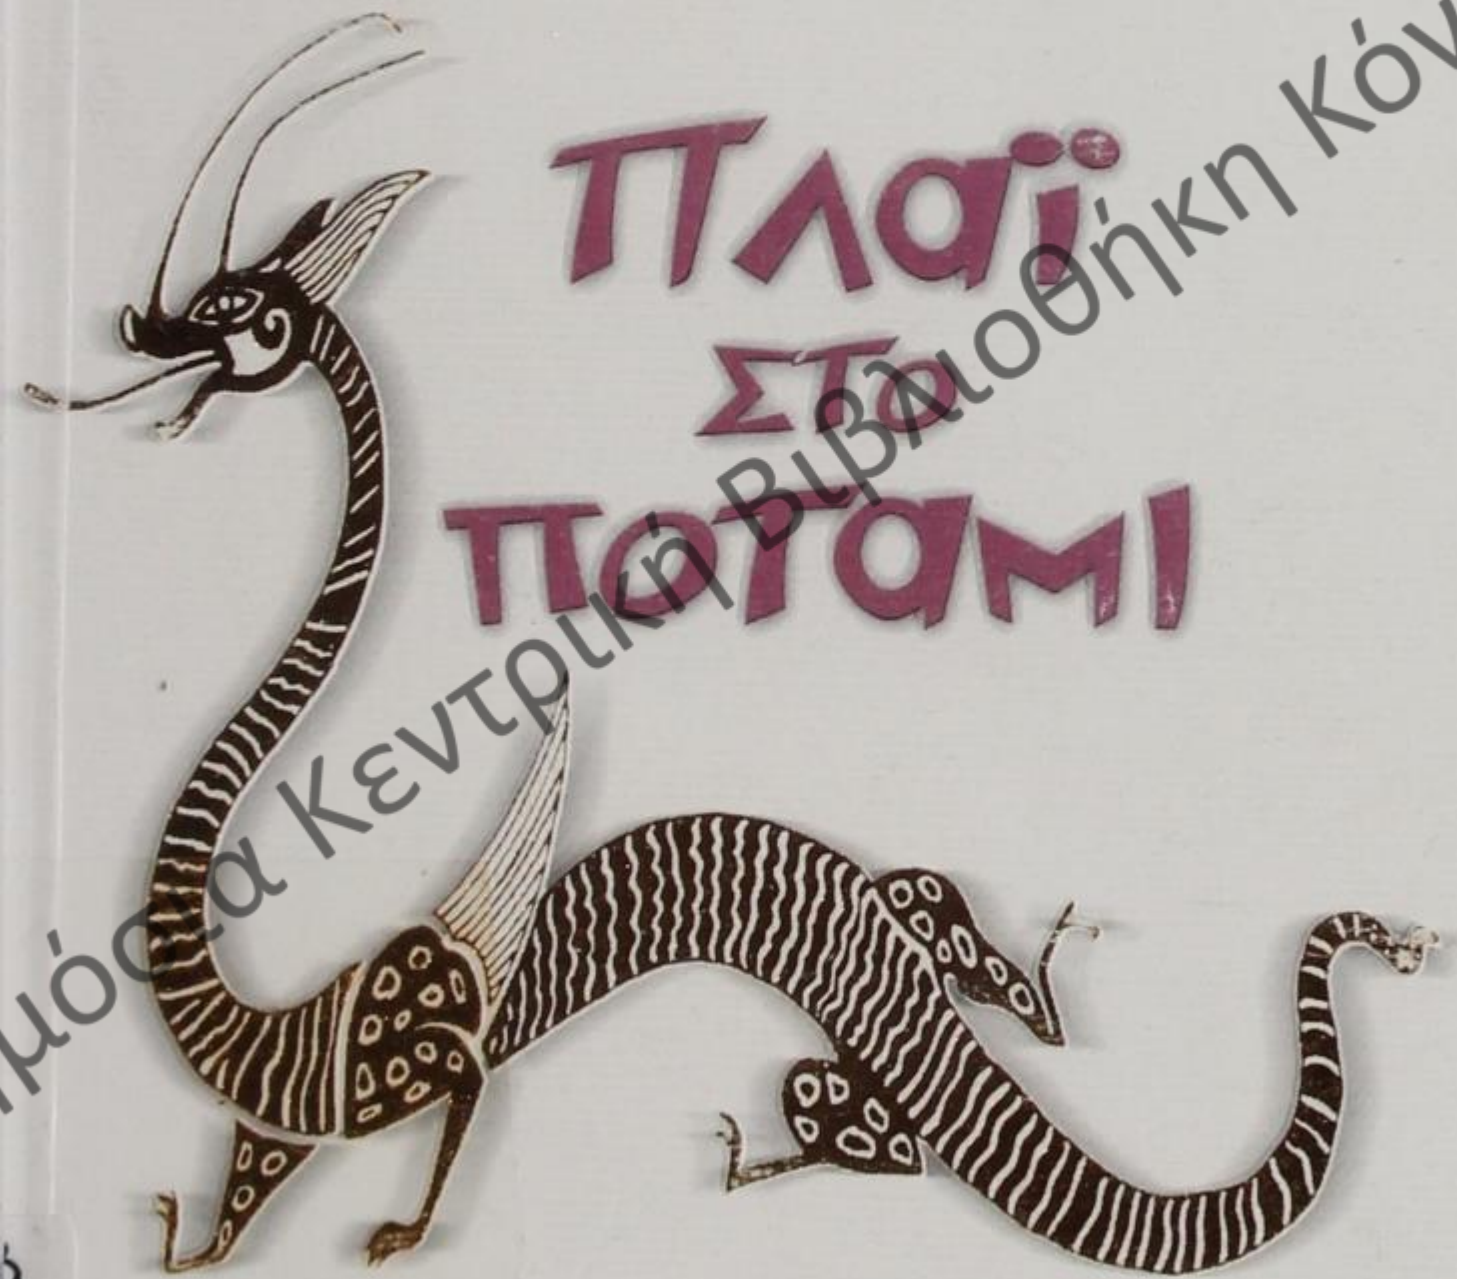 Πλαϊ
στο
ποταμι
Δημόσια Κεντρική Βιβλιοθήκη Κόν